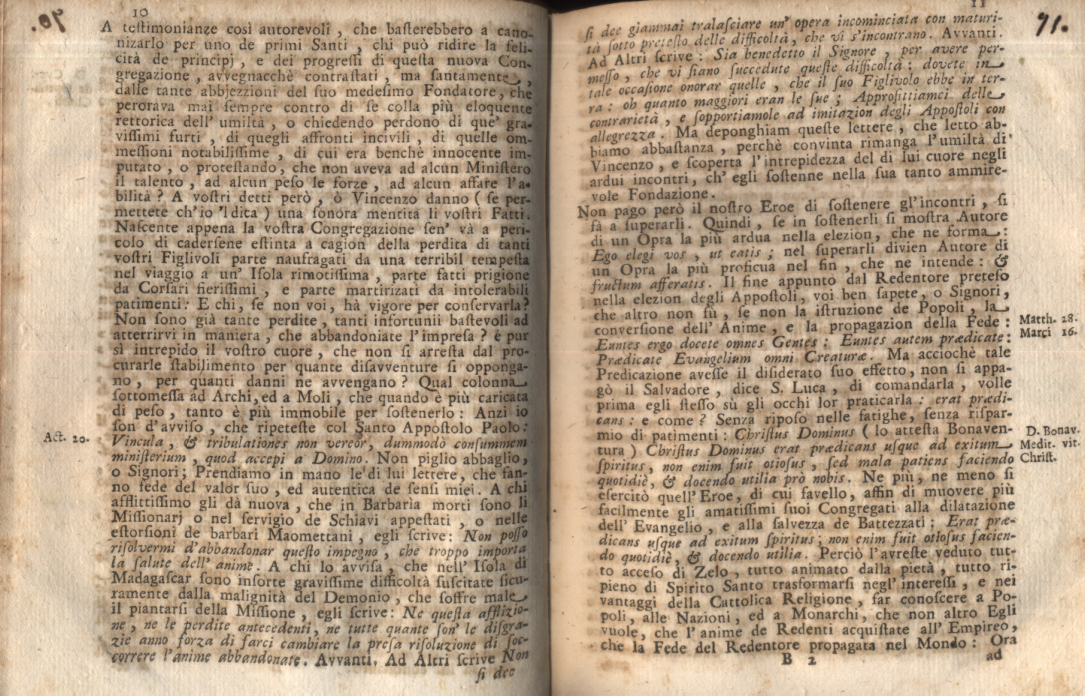 10
70.
A teſtimonianze così autorevoli , che baſterebbero a cano-
nizarlo per uno de primi Santi , chi può ridire la feli-
cità de principj , e dei progreſſi di queſta nuova Con-
gregazione , avvegnacchè contraſtati , ma ſantamente ,
dalle tante abbjezzioni del ſuo medeſimo Fondatore, che
perorava mai ſempre contro di ſe colla più eloquente
rettorica dell' umiltà , o chiedendo perdono di que' gra-
viſſimi furti , di quegli affronti incivili , di quelle om-
meſſioni notabiliſſime , di cui era benchè innocente im-
putato , o proteſtando, che non aveva ad alcun Miniſtero
il talento , ad alcun peſo le forze , ad alcun affare l'a-
bilità ? A voſtri detti però , ò Vincenzo danno ( ſe per-
mettete ch'io 'l dita ) una ſonora mentita li voſtri Fatti.
Naſcente appena la voſtra Congregazione ſen' và a peri-
colo di caderſene eſtinta a cagion della perdita di tanti
voſtri Figlivoli parte naufragati da una terribil tempeſta
nel viaggio a un' Iſola rimotiſſima , parte fatti prigione
da Corſari fieriſſimi , e parte martirizati da intolerabili
patimenti: E chi, ſe non voi, hà vigore per conſervarla?
Non ſono già tante perdite, tanti infortunii baſtevoli ad
atterrirvi in maniera , che abbandoniate l'impreſa ? è pur
sì intrepido il voſtro cuore , che non ſi arreſta dal pro-
curarle ſtabilimento per quante diſavventure ſi opponga-
no , per quanti danni ne avvengano ? Qual colonna
ſottomeſſa ad Archi, ed a Moli , che quando è più caricata
di peſo , tanto è più immobile per ſoſtenerlo : Anzi io
ſon d'avviſo , che ripeteſte col Santo Appoſtolo Paolo:
Act. 20.
Vincula , & tribulationes non vereor, dummodò conſummem
miniſterium , quod accepi a Domino. Non piglio abbaglio,
o Signori; Prendiamo in mano le di lui lettere, che fan-
no fede del valor ſuo , ed autentica de ſenſi miei. A chi
afflittiſſimo gli dà nuova , che in Barbaria morti ſono li
Miſſionarj o nel ſervigio de Schiavi appeſtati , o nelle
eſtorſioni de barbari Maomettani , egli ſcrive: Non poſſo
riſolvermi d'abbandonar queſto impegno , che troppo importa
la ſalute dell' anime. A chi lo avviſa , che nell' Iſola di
Madagaſcar ſono inſorte graviſſime difficoltà ſuſcitate ſicu-
ramente dalla malignità del Demonio , che ſoffre male
il piantarſi della Miſſione , egli ſcrive: Ne queſta afflizio-
ne , ne le perdite antecedenti, ne tutte quante ſon' le diſgra-
zie anno forza di farci cambiare la preſa riſoluzione di ſoc-
correre l'anime abbandonate. Avvanti. Ad Altri ſcrive Non
ſi dee
11
71.
ſi dee giammai tralaſciare un' opera incominciata con maturi-
tà ſotto preteſto delle difficoltà, che vi s'incontrano. Avvanti.
Ad Altri ſcrive : Sia benedetto il Signore , per avere per-
meſſo , che vi ſiano ſuccedute queſte difficoltà : dovete in
tale occaſione onorar quelle , che il ſuo Figlivolo ebbe in ter-
ra : oh quanto maggiori eran le ſue ; Approfittiamci delle
contrarietà , e ſopportiamole ad imitazion degli Appoſtoli con
allegrezza . Ma deponghiam queſte lettere , che letto ab-
biamo abbaſtanza , perchè convinta rimanga l'umiltà di
Vincenzo , e ſcoperta l'intrepidezza del di lui cuore negli
ardui incontri, ch' egli ſoſtenne nella ſua tanto ammire-
vole Fondazione.
Non pago però il noſtro Eroe di ſoſtenere gl'incontri , ſi
fà a ſuperarli. Quindi , ſe in ſoſtenerli ſi moſtra Autore
di un Opra la più ardua nella elezion, che ne forma :
Ego elegi vos , ut eatis ; nel ſuperarli divien Autore di
un Opra la più proficua nel fin , che ne intende : &
fructum afferatis . Il fine appunto dal Redentore preteſo
nella elezion degli Appoſtoli, voi ben ſapete, o Signori,
che altro non fù , ſe non la iſtruzione de Popoli , la
converſione dell' Anime , e la propagazion della Fede :
Matth. 28.
Euntes ergo docete omnes Gentes ; Euntes autem prædicate:
Marci 16.
Prædicate Evangelium omni Creaturæ. Ma acciochè tale
Predicazione aveſſe il diſiderato ſuo effetto, non ſi appa-
gò il Salvadore , dice S. Luca , di comandarla , volle
prima egli ſteſſo sù gli occhi lor praticarla : erat prædi-
cans : e come ? Senza ripoſo nelle fatighe, ſenza riſpar-
mio di patimenti : Chriſtus Dominus ( lo atteſta Bonaven-
D. Bonav.
tura ) Chriſtus Dominus erat prædicans uſque ad exitum
Medit. vit.
ſpiritus, non enim fuit otioſus , ſed mala patiens faciendo
Chriſt.
quotidiè, & docendo utilia prò nobis. Ne più, ne meno ſi
eſercitò quell' Eroe, di cui favello, affin di muovere più
facilmente gli amatiſſimi ſuoi Congregati alla dilatazione
dell' Evangelio , e alla ſalvezza de Battezzati : Erat præ-
dicans uſque ad exitum ſpiritus; non enim fuit otioſus facien-
do quotidiè, & docendo utilia. Perciò l'avreſte veduto tut-
to acceſo di Zelo , tutto animato dalla pietà , tutto ri-
pieno di Spirito Santo trasformarſi negl' intereſſi , e nei
vantaggi della Cattolica Religione , far conoſcere a Po-
poli, alle Nazioni, ed a Monarchi, che non altro Egli
vuole, che l'anime de Redenti acquiſtate all' Empireo,
che la Fede del Redentore propagata nel Mondo : Ora
B 2
ad